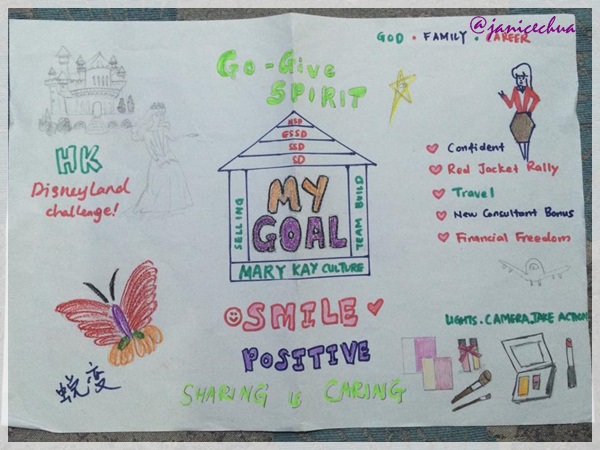 @janicechua
GOD • FAMILY • CAREER
GO-GIVE
SPIRIT
NSD
ESSD
SSD
SD
MY
GOAL
SELLING
TEAM BUILD
MARY KAY CULTURE
HK
Disneyland
challenge!
Confident
Red Jacket Rally
Travel
New Consultant Bonus
Financial Freedom
LIGHTS. CAMERA, TAKE ACTION
SMILE
POSITIVE
SHARING is CARING
蜕变